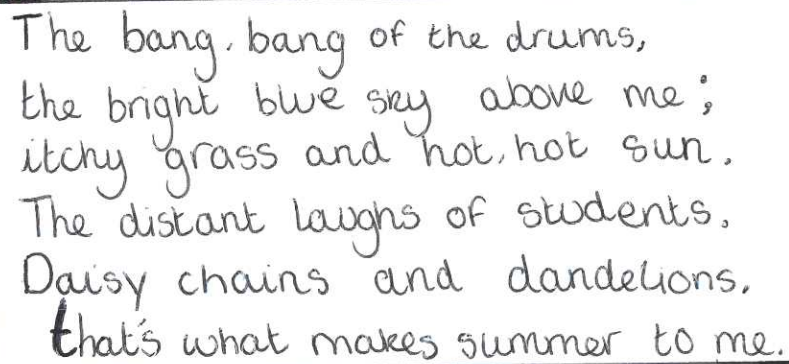 The bang, bang of the drums,
the bright blue sky above me;
itchy grass and hot, hot sun.
The distant laughs of students.
Daisy chains and dandelions.
that's what makes summer to me.